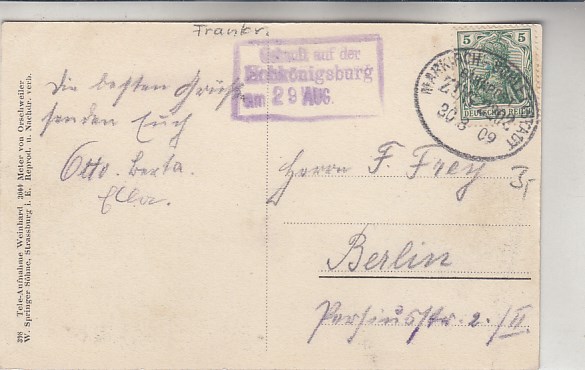 Frankr.
Gekauft auf der
Hohkönigsburg
am 29 AUG.
5 5
DEUTSCHES REICH
MARKIRCH - SCHLETTSTADT
BAHNPOST
ZUG
30 8 09
Die besten Grüße
senden Euch
Otto. Berta.
Ella.
Herrn F. Frey
Berlin
Persiusstr. 2./II.
3,-
398 Tele-Aufnahme Weinhard 3000 Meter von Orschweiler
W. Springer Söhne, Strassburg i. E. Reprod. u. Nachdr. verb.